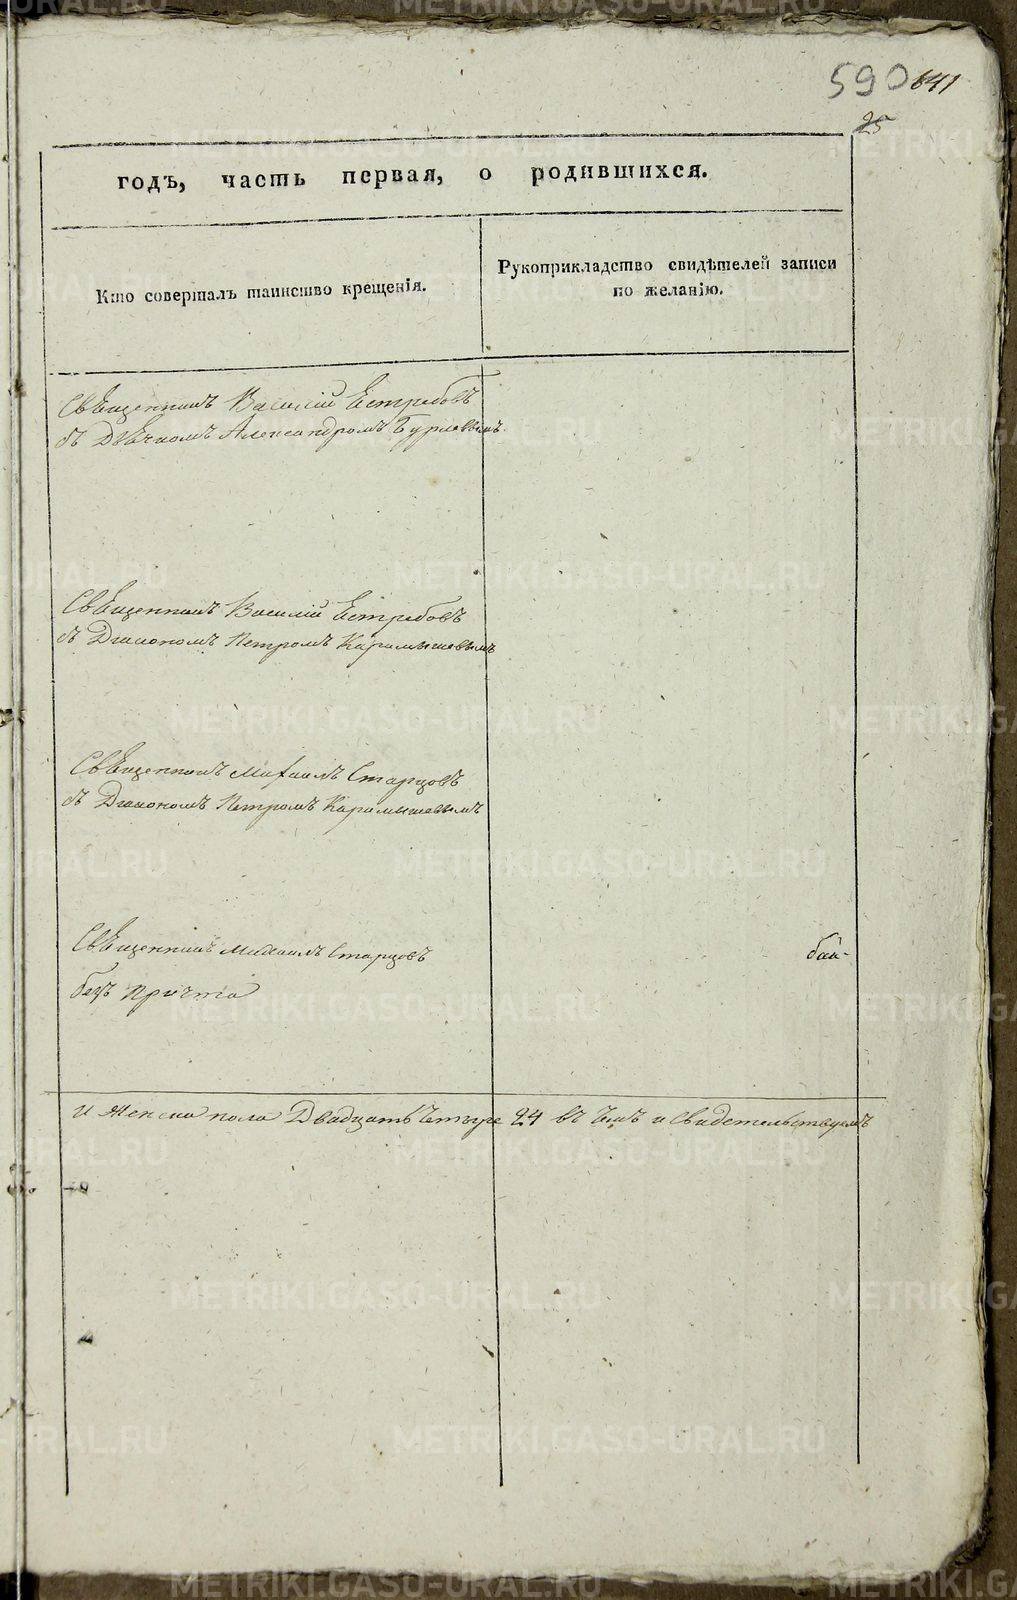 590 641
25
годъ, часть первая, о родившихся.
Кто совершалъ таинство крещенія.
Рукоприкладство свидѣтелей записи
по желанію.
Священникъ Василій Естребовъ
съ Дьячкомъ Александромъ Бурлевымъ
Священникъ Василій Естребовъ
съ Діакономъ Петромъ Карамышевымъ
Священникъ Михаилъ Старцовъ
съ Діакономъ Петромъ Карамышевымъ
Священникъ Михаилъ Старцовъ
безъ причта
и женска пола Двадцать четыре 24 въ чемъ и свидетельствуемъ
METRIKI.GASO-URAL.RU